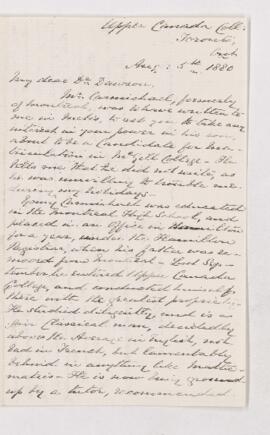 Upper Canada Coll:
Toronto,
Ont
Aug: 5th 1880
My dear Dr. Dawson,
Mr. Carmichael, formerly
of Montreal, was to have written to
me in Metis, to ask you to take any
interest in your power in his son,
about to be a Candidate for Ma-
triculation in McGill College - He
tells me that he did not write, as
he was unwilling to trouble me
during my holidays.
Young Carmichael was educated
in the Montreal High School, and
placed in an Office in Hamilton
for a year, under the Hamilton
Registrar, when the father was re-
moved from Montreal - Last Sep-
tember he entered Upper Canada
College, and conducted himself
there with the greatest propriety -
He studied diligently and is a
fair Classical man, decidedly
above the Average in English, not
bad in French, but lamentably
behind in anything like Mathe-
matics - He is now being ground
up by a tutor, recommended